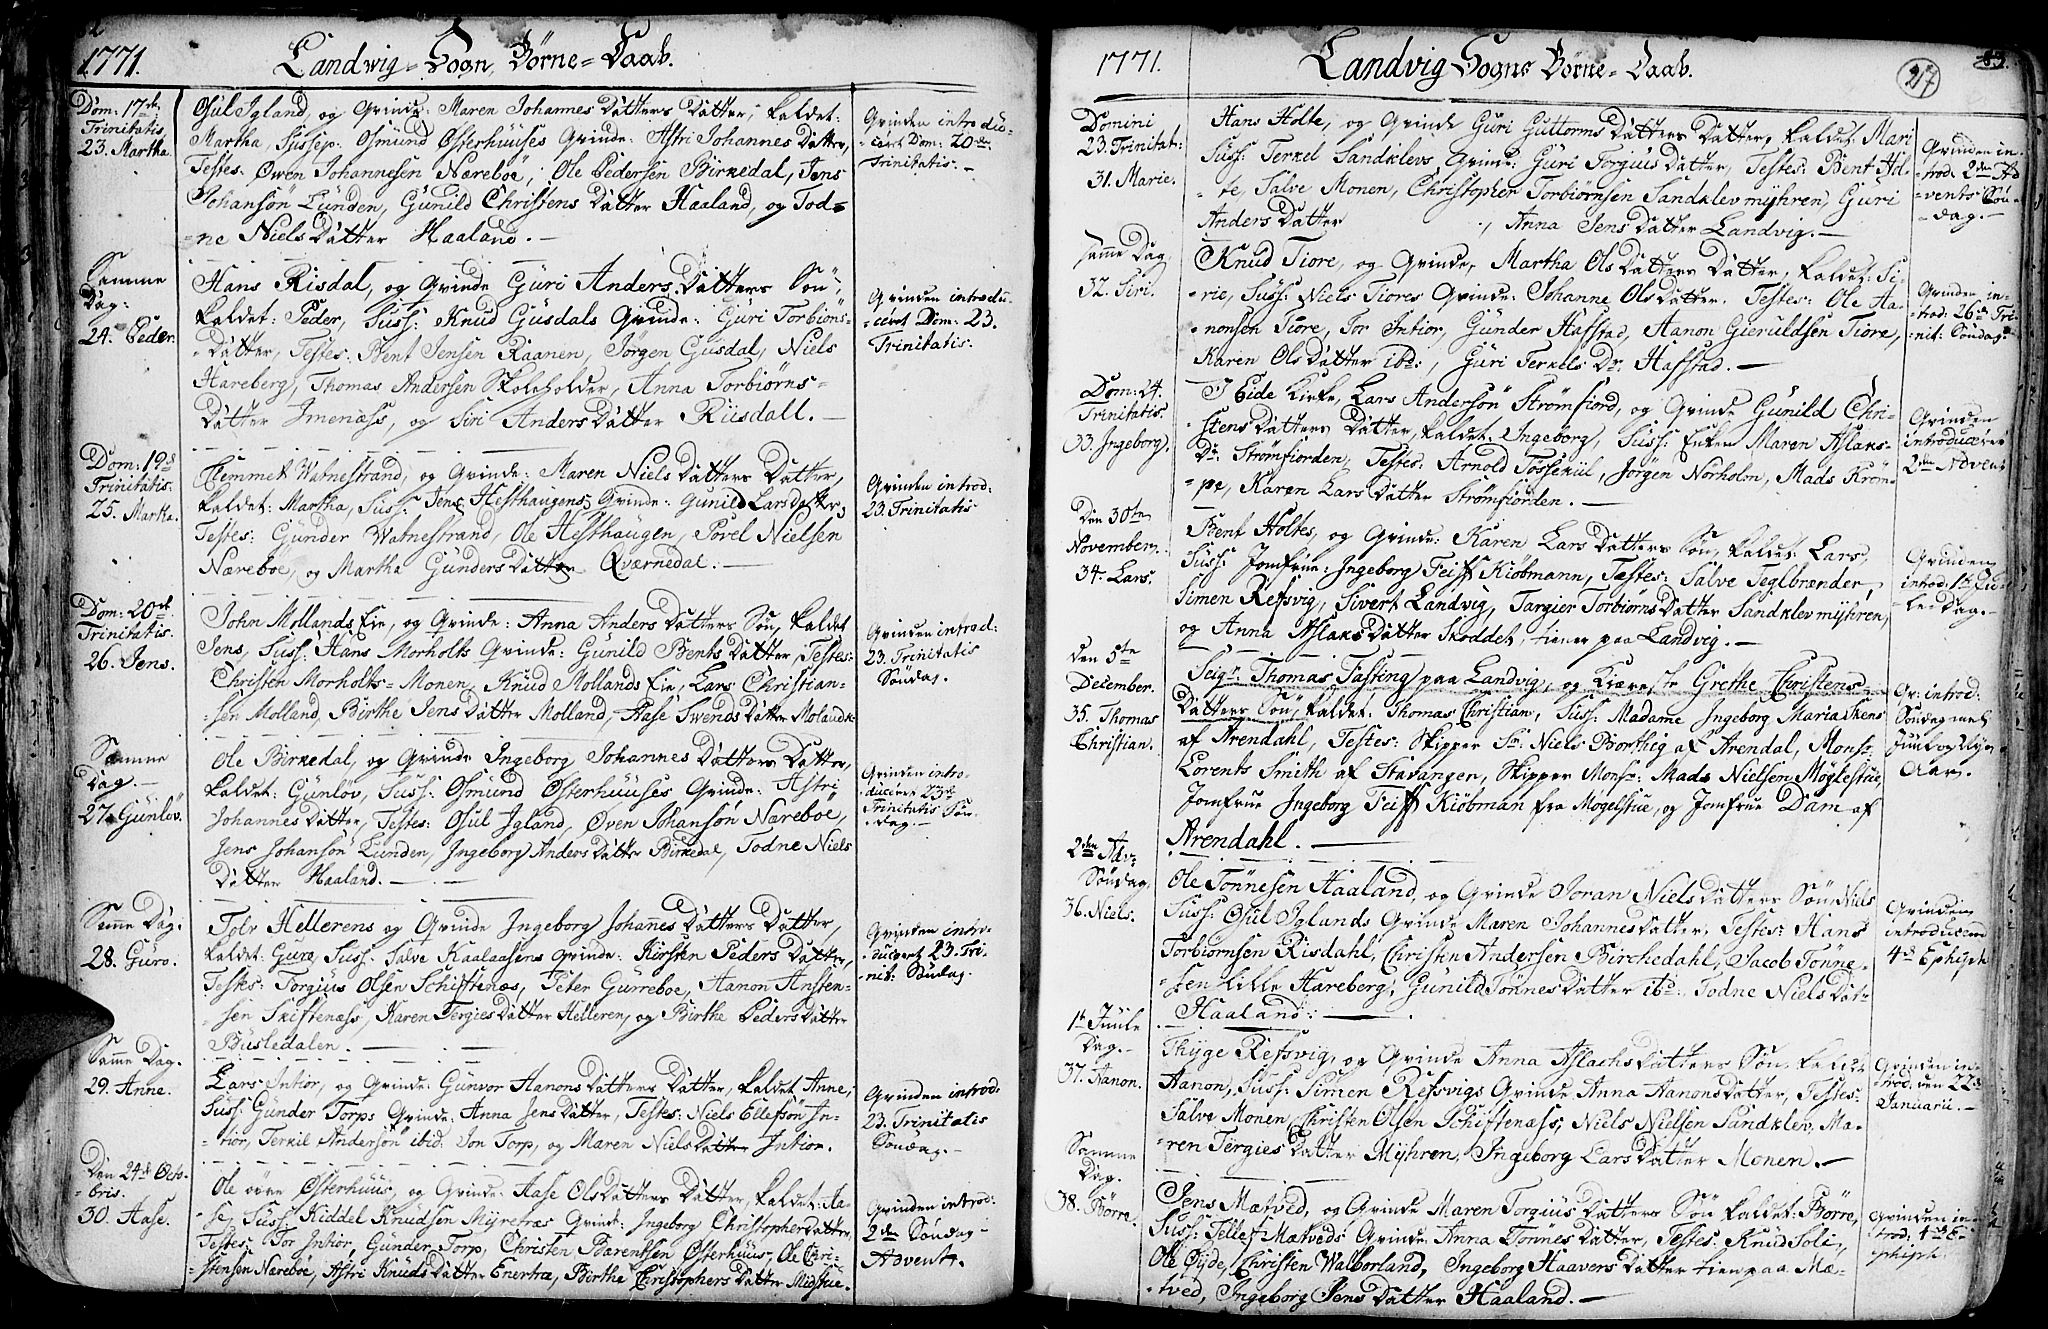 82
1771. Landwig-Sogn, Börne-Daab.
Dom: 17de
Trinitatis
23. Martha.
Osül Igland, og Qvinde: Maren Johannes Datters Datter, kaldet:
Martha, Suscep: Osmünd Osterhuuses Qvinde: Astri Johannes Datter,
Testes: Owen Johannesen Næreböe, Ole Pedersen Birkedal, Jens
Johansön Lünden, Günild Christens Datter Haaland, og Tod-
-ne Niels Datter Haaland.-
Qvinden introdu-
-ceret Dom: 20de
Trinitatis.-
Samme
Dag:
24. Peder.
Hans Risdal, og Qvinde Güri Anders Datters Sön,
kaldet: Peder, Süss: Knud Güsdals Qvinde: Güri Torbiöns-
-Datter, Testes: Bent Jensen Raanen, Jörgen Gusdal, Niels
Hareberg, Thomas Andersen Skoleholder, Anna Torbiörns-
Datter Imenæss, og Siri Anders Datter Riisdall.-
Qvinden introdu-
-ceret Dom: 23.
Trinitatis.
Dom: 19de
Trinitatis:
25. Martha.
Clemmet Watnestrand, og Qvinde: Maren Niels Datters Datter,
kaldet: Martha, Süs: Jens Hesthaugens Qvinde: Gunild Larsdatter,
Testes: Günder Watnestrand, Ole Hesthaugen, Povel Nielsen
Næreböe, og Martha Günders Datter Qværnedal.-
Qvinden introd:
23. Trinitatis
Dom: 20de
Trinitatis.
26. Jens.
John Mollands Eie, og Qvinde: Anna Anders Datters Sön, kaldet
Jens, Süss: Hans Morholts Qvinde: Günild Bents Datter, Testes:
Christen Morholts-Monen, Knud Mollands Eie, Lars Christian-
-sen Molland, Birthe Jens Datter Molland, Aase Swends Datter Molands
Qvinden introd:
23. Trinitatis
Söndag.
Samme
Dag.-
27. Günlöv.
Ole Birkedal, og Qvinde Ingeborg Johannes Datters Datter,
kaldet: Günlöv, Süss: Osmünd Osterhüüses Qvinde: Astri
Johannes Datter, Testes: Osül Igland, Öven Johansön Næreböe,
Jens Johansön Lunden, Ingeborg Anders Datter Birkedal, Todne Niels
Datter Haaland.-
Qvinden intro-
duceret 23de
Trinitatis Sön-
-dag.-
Samme Dag.
28. Guro.
Tolv Hellerens og Qvinde Ingeborg Johannes Datters Datter,
kaldet: Guro, Süs: Salve Kaalaasens Qvinde: Kirsten Peders Datter,
Testes: Torgiüs Olsen Schiftenæs, Peter Gürreboe, Aanon Ansten-
-sen Skiftenæss, Karen Tergies Datter Helleren, og Birthe Peders Datter
Büsledalen.
Qvinden intro-
-duceret 23. Tri-
nit: Söndag.
Samme Dag.
29. Anne.
Lars Intiör, og Qvinde: Günvor Aanons Datters Datter, kaldet Anne,
Süss: Günder Torps Qvinde: Anna Jens Datter, Testes: Niels Ellefsön In-
-tiör, Terkil Andersön ibid. Jon Torp, og Maren Niels Datter Intiör.
Qvinden introd:
23. Trinitatis
Söndag.-
Den 24de Octo-
-bris.
30. Aase.
Ole övre Osterhuus, og Qvinde: Aase Ols Datters Datter, kaldet: Aa-
-se, Süss: Kiddel Knudsen Myretræs Qvinde: Ingeborg Christopher Datter,
Testes: Tor Intiör, Günder Torp, Christen Bærentsen Osterhüüs, Ole Chri-
-stensen Næreboe, Astri Knüds Datter Enertræ, Birthe Christophers Datter Migstue.
Qvinden introd:
2den Söndag
Advent.
1771. Landvig Sogns Börne-Daab. 83.
217
Domini
23. Trinitat:
31. Marie.
Hans Holte, og Qvinde Güri Guttorms Datters Datter, kaldet: Mari
Süss: Terkel Sandklevs Qvinde: Güri Torgiüs Datter, Testes: Bent Hol-
-te, Salve Monen, Christopher Torbiörnsen Sandklevmyhren, Guri
Anders Datter , Anna Jens Datter Landvig.-
Qvinden in-
-trod. 2den Ad-
-vents Sön-
-dag.-
samme Dag
32. Siri.
Knud Tiore, og Qvinde, Martha Ols Datters Datter, kaldet: Si-
-rie, Süss: Niels Tiores Qvinde: Johanne Ols Datter. Testes: Ole Aa-
-nonsen Tiore, Tor Intiör, Günder Hafstad, Aanon Gieruldsen Tiore,
Karen Ols Datter ibd:, Güri Terkels Dr. Hafstad.-
Qvinden in-
-trod: 26de Tri-
-nit: Söndag.
Dom: 24.
Trinitatis
33. Ingeborg.
I Eide Kirke, Lars Andersön Strömfiord, og Qvinde Günild Chri-
-stens Datters Datter, kaldet: Ingeborg, Süss: Enken Maren Aslaks-
Dr. Strömfiorden, Testes: Arnold Tössekiil, Jörgen Norholm, Mads Kröm-
-pe, Karen Lars Datter Strömfiorden.-
Qvinden
introduceret
2den Advent
Den 30te
November.
34. Lars.
Bent Holtes, og Qvinde: Karen Lars Datters Sön, kaldet: Lars,
Süss: Jomfrue: Ingeborg Feiff Kiöbmann, Testes: Salve Teglbrænder,
Simen Refsvig, Sivert Landvig, Targier Torbiörns Datter Sandklevmyhren,
og Anna Aslaks Datter Skoddet, tiener paa Landvig.-
Qvinden
introd: 1te Ju-
-le-Dag.-
den 5te
December.
35. Thomas
Christian.
Seigr. Thomas Fasting paa Landvig, og Kiæreste Grethe Christens-
Datters Sön, kaldet: Thomas Christian, Süss: Madame Ingeborg Maria Skens
af Arendahl, Testes: Skipper Sr: Niels Borthig af Arendal, Monsr:
Lorents Smith af Stavanger, Skipper Monsr: Mads Nielsen Möglestüe,
Jomfrue Ingeborg Feiff Kiöbman fra Mögelstue, og Jomfrue Dam af
Arendahl.-
Qv: introd:
Söndag mel:
Juul og Nye
Aar.
2den Adv:
Söndag.
36. Niels.
Ole Tönnesen Haaland, og Qvinde Joran Niels Datters Sön, Niels
Süss: Osül Iglands Qvinde Maren Johannes Datter, Testes: Hans
Torbiörnsen Risdahl, Christen Andersen Birchedahl, Jacob Tönne-
-sen lille Hareberg, Günild Tönnes Datter ibd:, Todne Niels Datr
Haaland:-
Qvinden
introduceret
4de Ephiph
1te Juule
Dag.-
37. Aanon.
Thyge Refsvig, og Qvinde Anna Aslachs Datters Sön kaldet
Aanon, Süss: Simen Refsvigs Qvinde Anna Aanons Datter, Testes:
Salve Monen, Christen Olsen Schiftenæss, Niels Nielsen Sandklev, Ma-
-ren Tergies Datter Myhren, Ingeborg Lars Datter Monen.-
Qvinden in-
-trod. den 22de
Januarii.-
Samme
Dag.
38. Börre.
Jens Mætved, og Qvinde Maren Torgiüs Datters Sön kaldet: Börre,
Süss: Tellef Mætveds Qvinde: Anna Tönnes Datter, Testes: Knud Soli,
Ole Öyde, Christen Walborland, Ingeborg Haavers Datter tien paa Mæ-
-tved, Ingeborg Jens Datter Haaland.-
Qvinden in-
-trod: 4de E-
-phiph